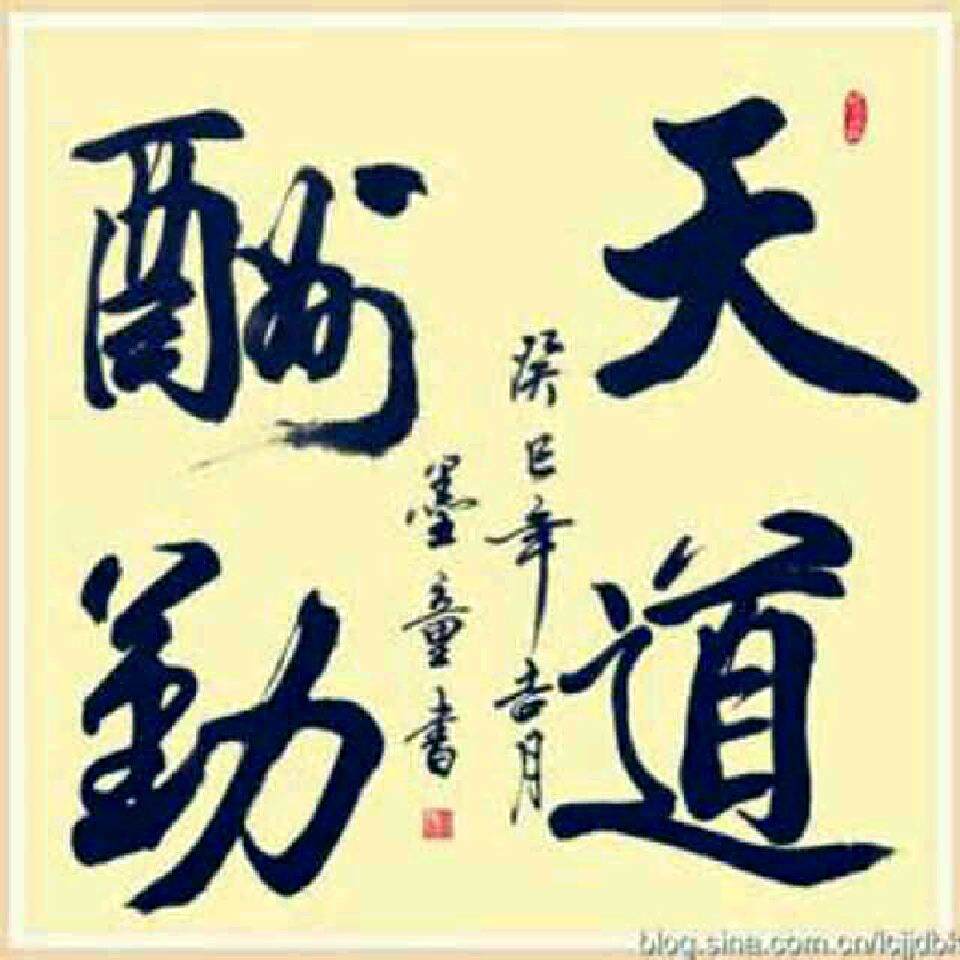 天道
酬勤
癸巳年吉月
墨童書
blog.sina.com.cn/lcjjdbh